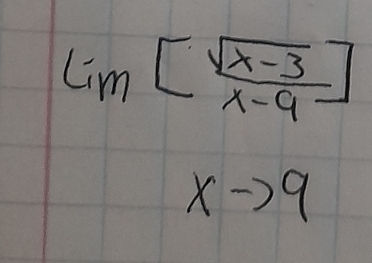 lim [ √x-3 / x-9 ]
x->9